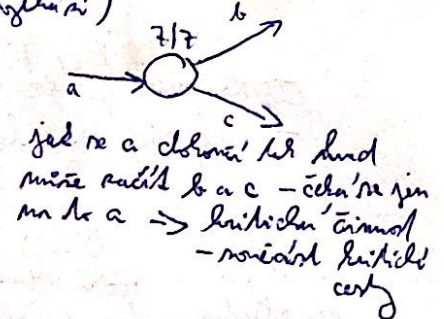 b
7/7
a
c
jak se a dokončí tak hned
může začít b a c – čeká se jen
na to a => kritická činnost
– součást kritické
cesty